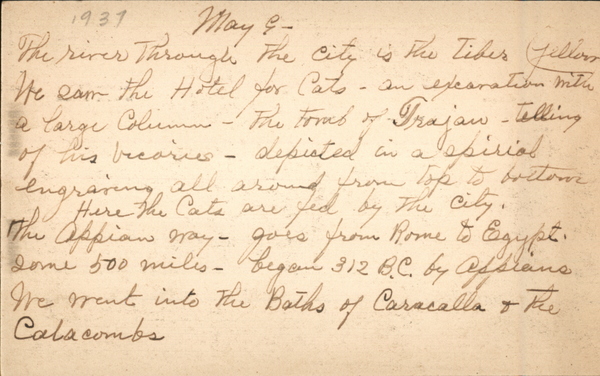 1937
May 9-
The river through the city is the tiber (yellow
We saw the Hotel for Cats - an excavation with
a large Column - the tomb of Trajan - telling
of his vicories - depicted in a spiriol
engraving all around from top to bottom
Here the Cats are fed by the city.
The Appian way - goes from Rome to Egypt.
some 500 miles - began 312 B.C. by Appians
We went into the Baths of Caracalla & the
Catacombs